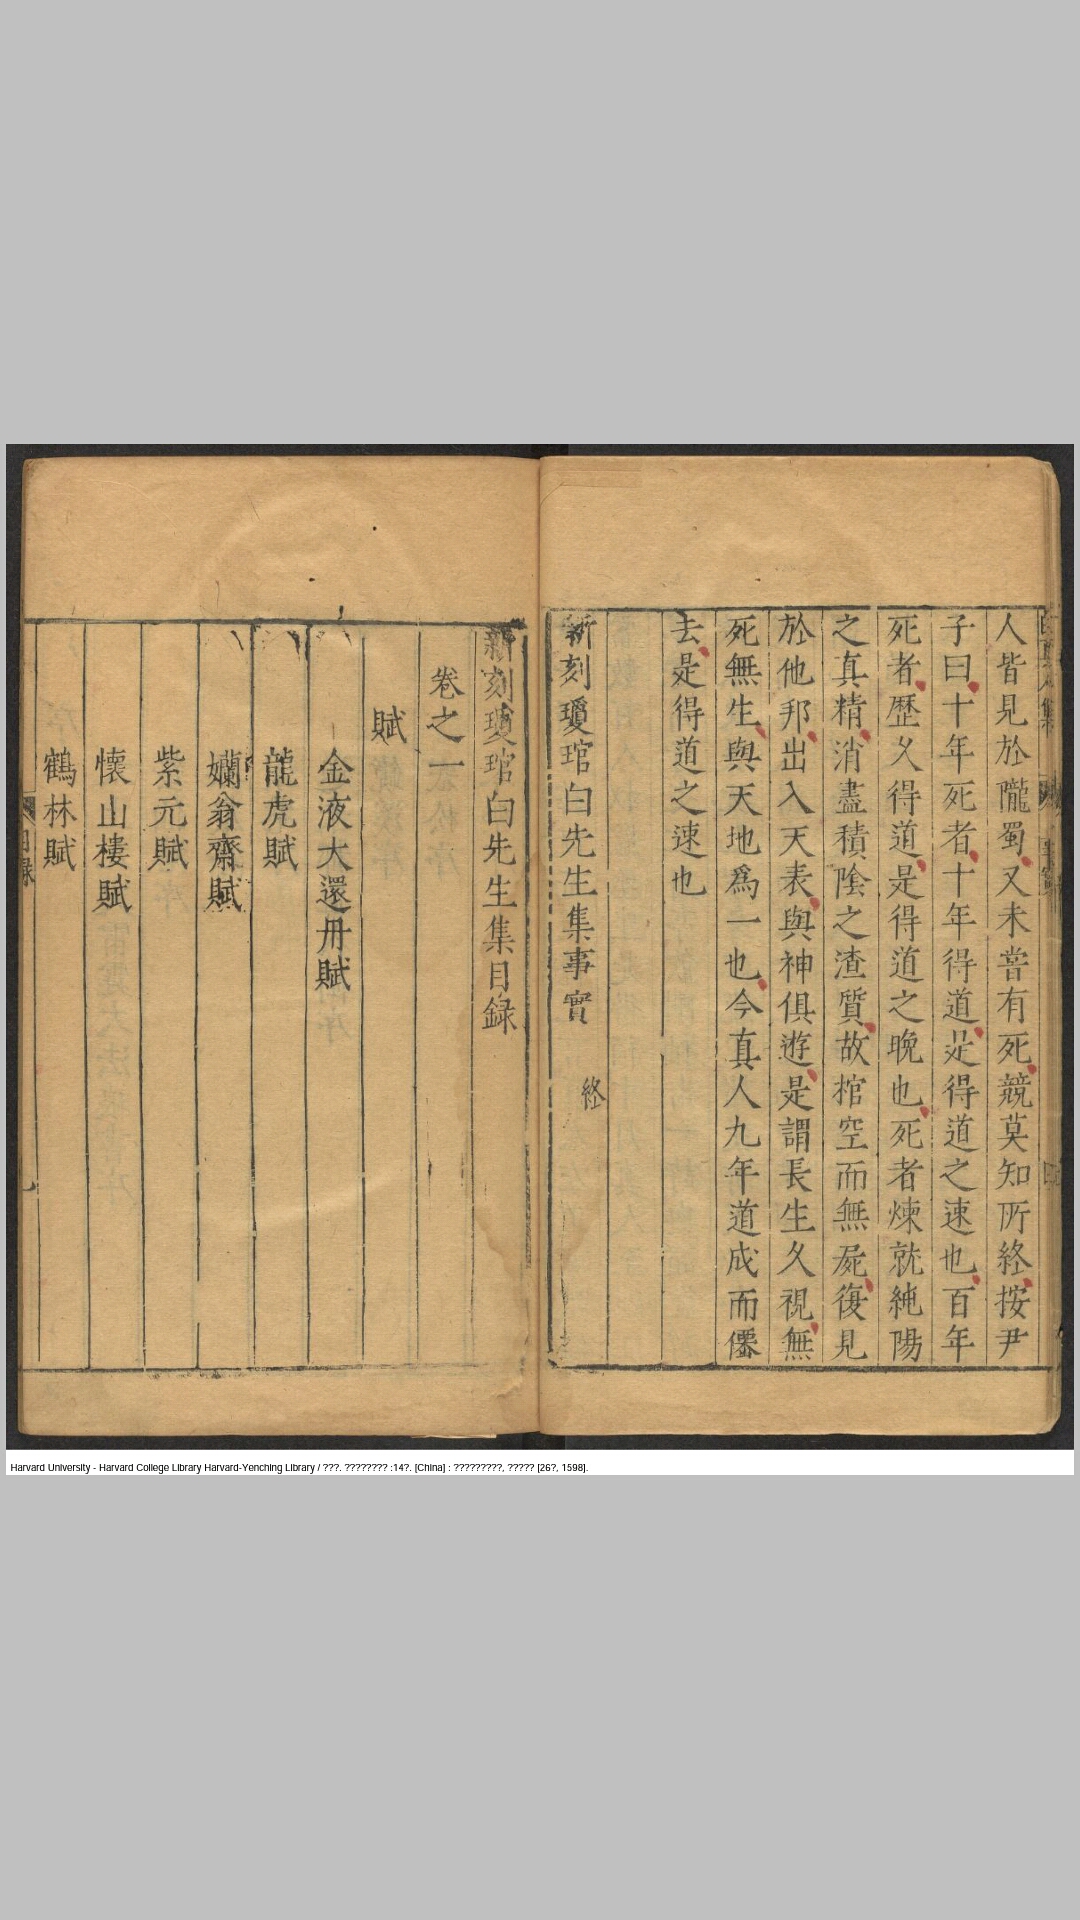 人皆見於隴蜀又未嘗有死競莫知所終按尹
子曰十年死者十年得道是得道之速也百年
死者歷久得道是得道之晚也死者煉就純陽
之真精消盡積陰之渣質故棺空而無屍復見
於他邦出入天表與神俱遊是謂長生久視無
死無生與天地為一也今真人九年道成而僊
去是得道之速也
新刻瓊琯白先生集事實 終
新刻瓊琯白先生集目録
卷之一
賦
金液大還丹賦
龍虎賦
嬾翁齋賦
紫元賦
懷山樓賦
鶴林賦
目録
Harvard University - Harvard College Library Harvard-Yenching Library / ???. ???????? :14?. [China] : ?????????, ????? [26?, 1598].